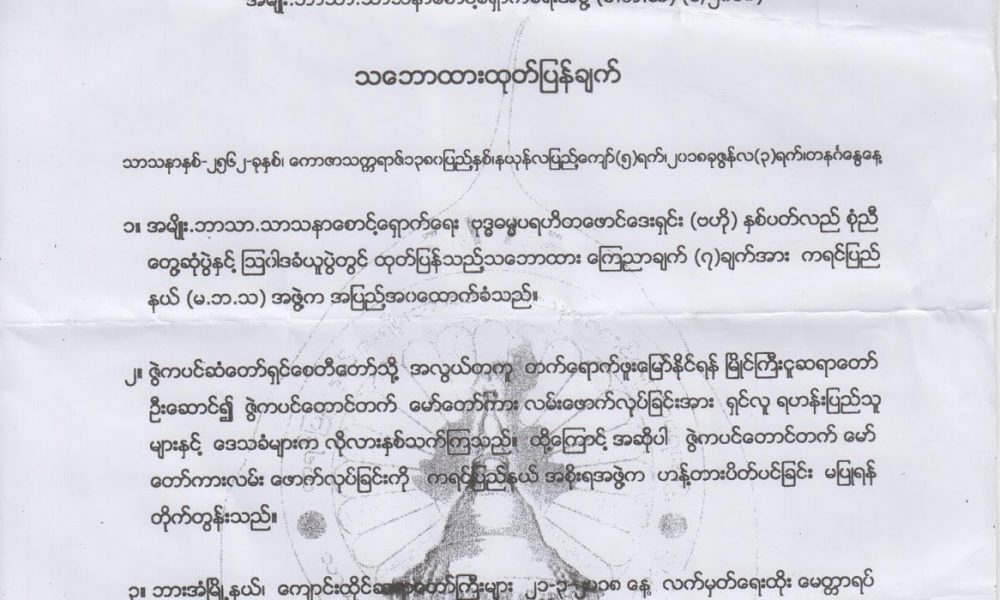 အမျိုး.ဘာသာ.သာသနာစောင့်ရှောက်ရေးအဖွဲ့ (မ.ဘ.သ)
သဘောထားထုတ်ပြန်ချက်
သာသနာနှစ်-၂၅၆၂-ခုနှစ်၊ ကောဇာသက္ကရာဇ်၁၃၈၀ပြည့်နှစ်၊နယုန်လပြည့်ကျော်(၅)ရက်၊၂၀၁၈ခုဇွန်လ(၃)ရက်၊တနင်္ဂနွေနေ့
၁။ အမျိုး.ဘာသာ.သာသနာစောင့်ရှောက်ရေး ဗုဒ္ဓဓမ္မပရဟိတဖောင်ဒေးရှင်း (ဗဟို) နှစ်ပတ်လည် စုံညီ
တွေ့ဆုံပွဲနှင့် ဩဝါဒခံယူပွဲတွင် ထုတ်ပြန်သည့်သဘောထား ကြေညာချက် (၇)ချက်အား ကရင်ပြည်
နယ် (မ.ဘ.သ) အဖွဲ့က အပြည့်အဝထောက်ခံသည်။
၂။ ဇွဲကပင်ဆံတော်ရှင်စေတီတော်သို့ အလွယ်တကူ တက်ရောက်ဖူးမြော်နိုင်ရန် မြိုင်ကြီးငူဆရာတော်
ဦးဆောင်၍ ဇွဲကပင်တောင်တက် မော်တော်ကား လမ်းဖောက်လုပ်ခြင်းအား ရှင်လူ ရဟန်းပြည်သူ
များနှင့် ဒေသခံများက လိုလားနှစ်သက်ကြသည်။ ထို့ကြောင့် အဆိုပါ ဇွဲကပင်တောင်တက် မော်
တော်ကားလမ်း ဖောက်လုပ်ခြင်းကို ကရင်ပြည်နယ် အစိုးရအဖွဲ့က ဟန့်တားပိတ်ပင်ခြင်း မပြုရန်
တိုက်တွန်းသည်။
၃။ ဘားအံမြို့နယ်၊ ကျောင်းထိုင်ဆရာတော်ကြီးများ ၂၁-၃-၂၀၁၈ နေ့ လက်မှတ်ရေးထိုး မေတ္တာရပ်